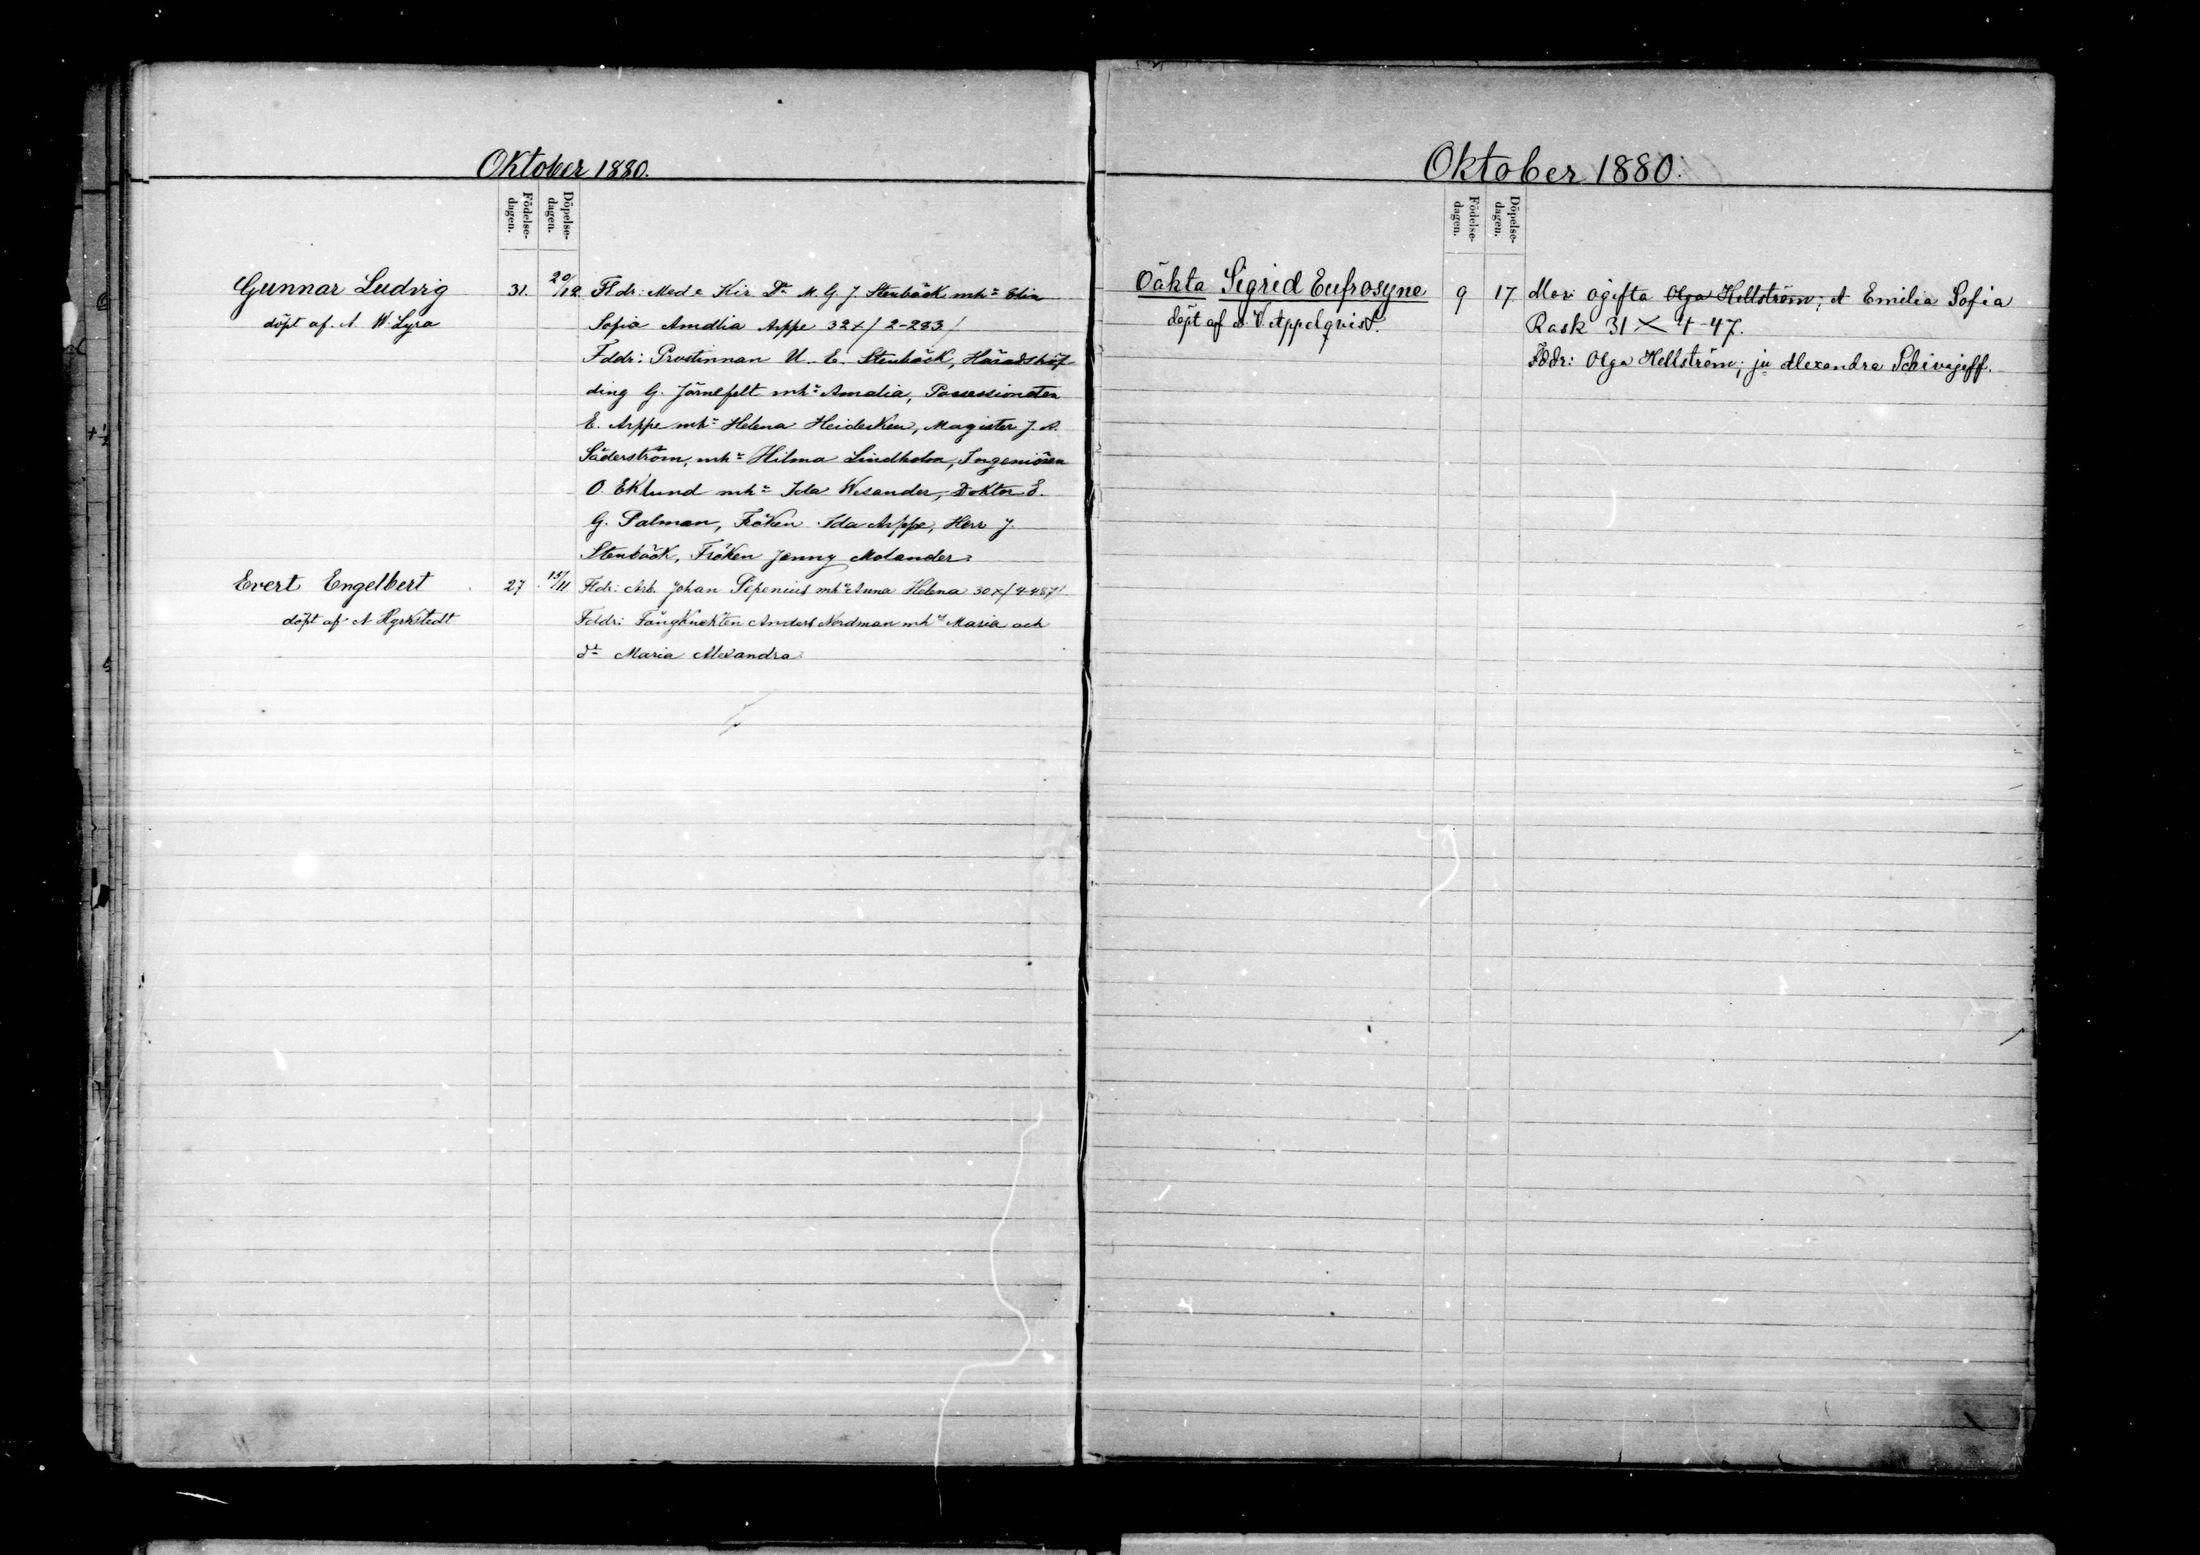 Oktober 1880.
Födelse-
dagen.
Döpelse-
dagen.
Gunnar Ludvig
döpt af. A W. Lyra
31.
20/12
Fldr: Med e Kir Dr M. G. J Stenbäck mhu Elin
Sofia Amalia Arppe 32 x/ 2-283/
Fddr: Prostinnan U. E. Stenbäck, Häradshöf
ding G. Järnefelt mhu Amalia, Possessionaten
E. Arppe mhu Helena Heideken, Magister J. A.
Söderström, mhu Hilma Lindholm, Ingeniören
O. Eklund mhu Ida Wesander, Doktor E.
G. Palman, Fröken Ida Arppe, Herr J.
Stenbäck, Fröken Jenny Molander.
Evert Engelbert
döpt af A Hyrkstedt
27
15/11
Fldr: Arb. Johan Pipenius mhu Anna Helena 30 x/ 4-487/
Fddr: Fångknekten Anders Nordman mhu Maria och
dr Maria Alexandra
Oktober 1880.
Födelse-
dagen.
Döpelse-
dagen.
Oäkta Sigrid Eufrosyne
döpt af A. V. Appelqvist.
9
17
Mor: ogifta Olga Hellström; A Emilia Sofia
Rask 31 X 4-47.
Fddr: Olga Hellström; ju Alexandra